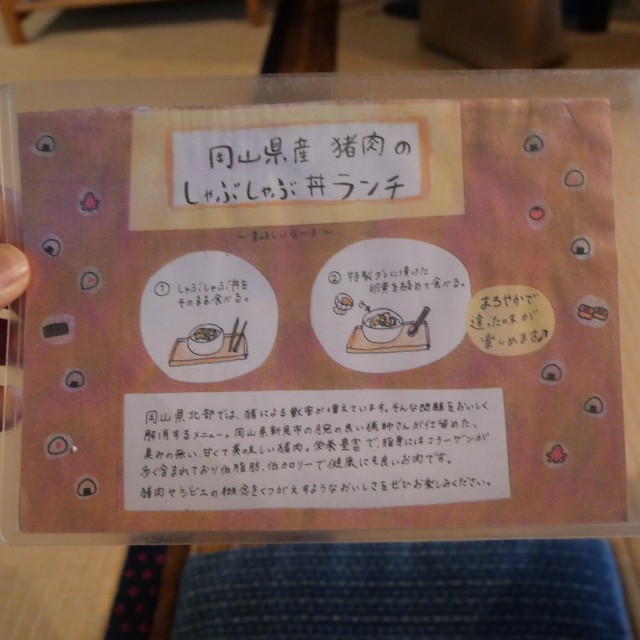 岡山県産 猪肉の
しゃぶしゃぶ丼ランチ
～美味しい食べ方～
① しゃぶしゃぶ丼を
そのまま食べる。
② 特製ダレに漬けた
卵黄を絡めて食べる。
まろやかで
違った味が
楽しめます♪
岡山県北部では、猪による獣害が増えています。そんな問題をおいしく
解消するメニュー。岡山県新見市の腕の良い猟師さんが仕留めた、
臭みの無い、甘くて美味しい猪肉。栄養豊富で脂身にはコラーゲンが
多く含まれており低脂肪、低カロリーで健康にも良いお肉です。
猪肉やジビエの概念をくつがえすようなおいしさをぜひお楽しみください。